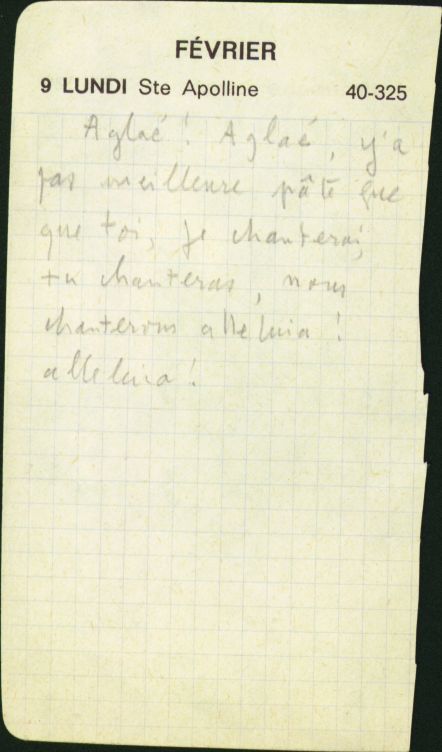 FÉVRIER
9 LUNDI Ste Apolline 40-325
Aglaé ! Aglaé, y'a
pas meilleure pâte que
que toi, je chanterai,
tu chanteras, nous
chanterons alleluia !
alleluia !